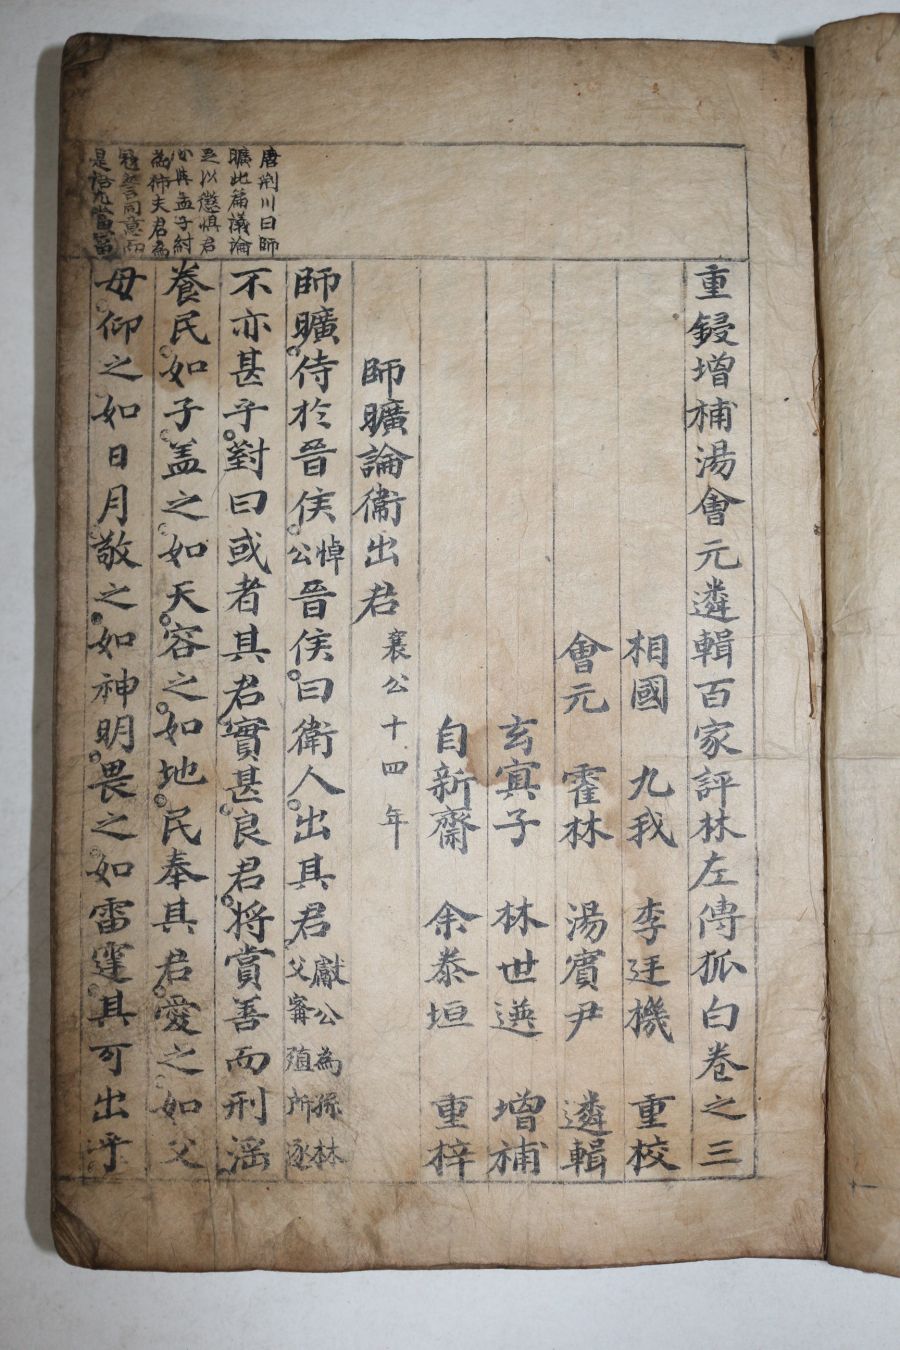 重鋟增補湯會元遴輯百家評林左傳狐白卷之三
相國 九我 李廷機 重校
會元 霍林 湯賓尹 遴輯
玄冥子 林世選 增補
自新齋 余泰垣 重梓
師曠論衞出君 襄公十四年
師曠侍於晉侯悼公晉侯曰衛人出其君獻公為孫林父甯殖所逐
不亦甚乎對曰或者其君實甚良君将賞善而刑滛
養民如子盖之如天容之如地民奉其君愛之如父
母仰之如日月敬之如神明畏之如雷霆其可出乎
唐荆川曰師
曠此篇議論
足以懲惧君
心與孟子紂
為夫君為
冦讐同意而
是當